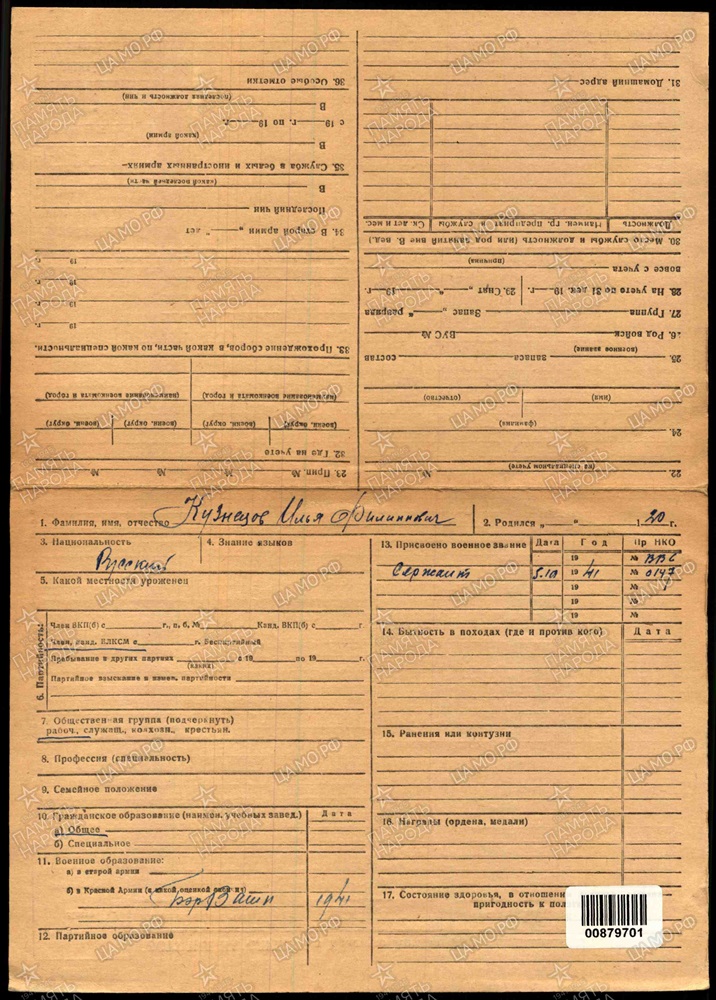 1. Фамилия, имя, отчество Кузнецов Илья Филиппович
2. Родился „ “ 1920 г.
3. Национальность Русский
4. Знание языков
5. Какой местности уроженец
6. Партийность:
Член ВКП(б) с г., п. б. № Канд. ВКП(б) с г.
Член, канд. КЛКСМ с г. Беспартийный
Пребывание в других партиях с 19 по 19 г.
(каких)
Партийные взыскания и измен. партийности
7. Общественная группа (подчеркнуть)
рабоч., служащ., колхозн., крестьян.
8. Профессия (специальность)
9. Семейное положение
10. Гражданское образование (наимен. учебных завед.) Дата
а) Общее
б) Специальное
11. Военное образование:
а) в старой армии
б) в Красной Армии
1941
12. Партийное образование
13. Присвоено военное звание Дата Год Пр НКО
Сержант 5.10 1941 № ВВС
19 № 0147
19 №
19 №
14. Бытность в походах (где и против кого) Дата
15. Ранения или контузии
16. Награды (ордена, медали)
17. Состояние здоровья, в отношении
пригодность к
00879701
22.
(на специальном учете)
23. Прип. № № №
24.
(фамилия)
(имя) (отчество)
25. запаса состав
(военное звание)
26. Род войск ВУС №
27. Группа Запас „ “ разряда
28. На учете по 31 дек. 19 г. 29. Снят „ “ 19 г.
вовсе с учета
(причина)
30. Место службы и должность (или род занятий вне В. вед.)
Должность Наимен. гр. предприят. и службы Ск. лет и мес.
31. Домашний адрес
32. Где на учете
(воен. округ) (воен. округ) (воен. округ) (воен. округ)
(наименование военкомата и город) (наименование военкомата и город)
33. Прохождение сборов, в какой части, по какой специальности.
19 г. 19
19 г. 19
19 г. 19
19 г. 19
34. В старой армии „ “ лет
Последний чин
В
(какой последней части)
35. Служба в белых и иностранных армиях
В
(какой армии)
с 19 г. по 19 г.
В
(последняя должность и чин)
36. Особые отметки
ЦАМО.РФ
ПАМЯТЬ НАРОДА